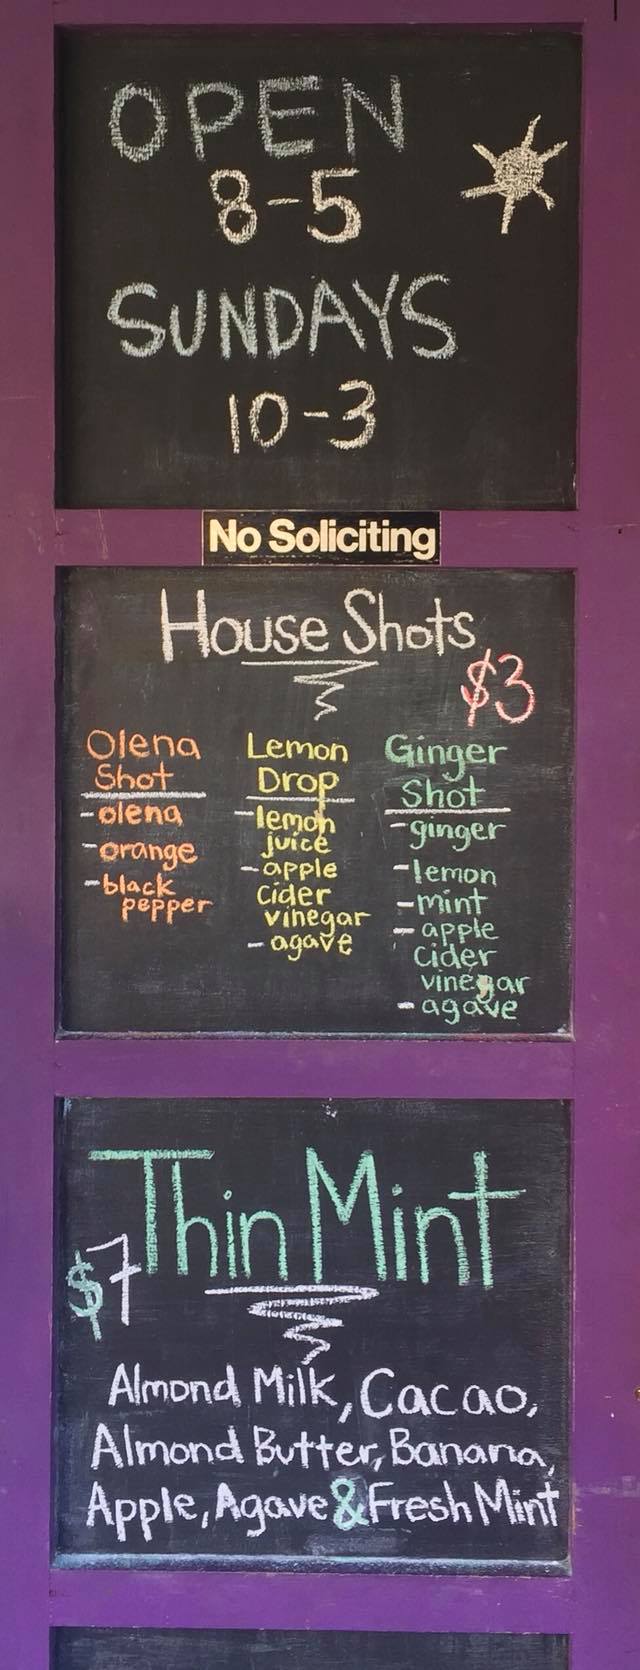 OPEN
8-5
SUNDAYS
10-3
No Soliciting
House Shots
$3
Olena
Shot
-olena
-orange
-black
pepper
Lemon
Drop
-lemon
juice
-apple
cider
vinegar
-agave
Ginger
Shot
-ginger
-lemon
-mint
-apple
cider
vinegar
-agave
Thin Mint
$7
Almond Milk, Cacao,
Almond Butter, Banana,
Apple, Agave & Fresh Mint